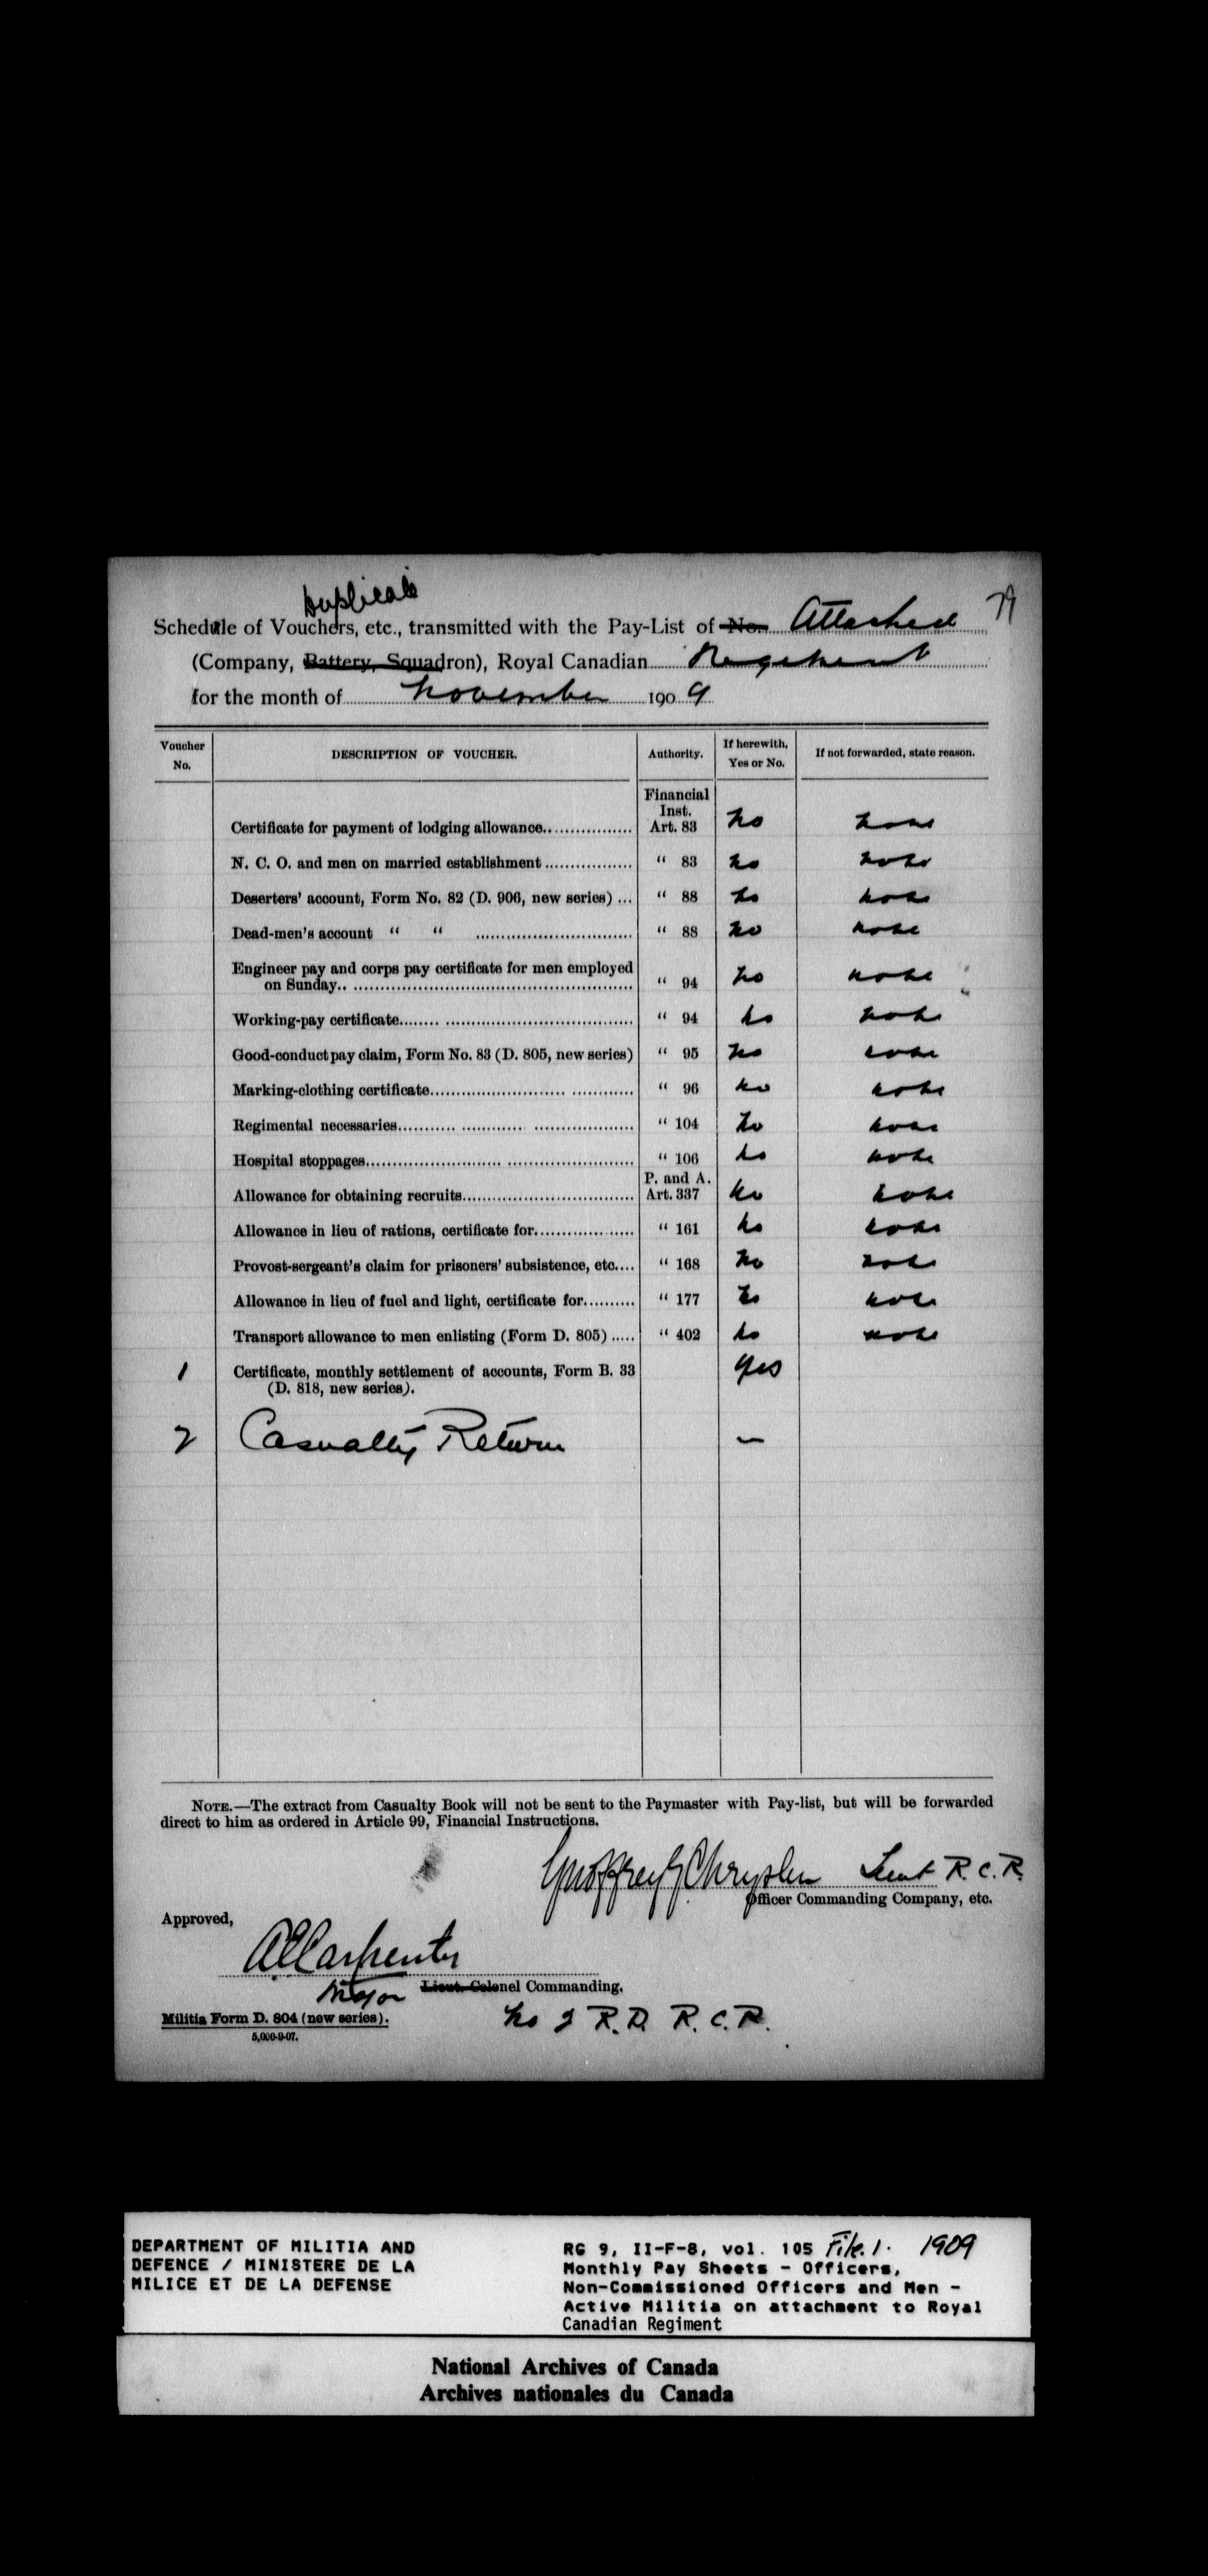 Duplicate
79
Schedule of Vouchers, etc., transmitted with the Pay-List of No. Attached
(Company, Battery, Squadron), Royal Canadian Regiment
for the month of November 1909
Voucher No. DESCRIPTION OF VOUCHER. Authority. If herewith, Yes or No. If not forwarded, state reason.
Financial Inst.
Certificate for payment of lodging allowance Art. 83 no none
N. C. O. and men on married establishment " 83 no none
Deserters' account, Form No. 82 (D. 906, new series) ... " 88 no none
Dead-men's account " " " 88 no none
Engineer pay and corps pay certificate for men employed
on Sunday " 94 no none
Working-pay certificate " 94 no none
Good-conduct pay claim, Form No. 83 (D. 805, new series) " 95 no none
Marking-clothing certificate " 96 no none
Regimental necessaries " 104 no none
Hospital stoppages " 106 no none
P. and A.
Allowance for obtaining recruits Art. 337 no none
Allowance in lieu of rations, certificate for " 161 no none
Provost-sergeant's claim for prisoners' subsistence, etc.... " 168 no none
Allowance in lieu of fuel and light, certificate for " 177 no none
Transport allowance to men enlisting (Form D. 805) ..... " 402 no none
1 Certificate, monthly settlement of accounts, Form B. 33 yes
(D. 818, new series).
2 Casualty Return —
NOTE.—The extract from Casualty Book will not be sent to the Paymaster with Pay-list, but will be forwarded
direct to him as ordered in Article 99, Financial Instructions.
Chrysler Lieut R.C.R.
Officer Commanding Company, etc.
Approved,
AE Carpenter
Major Lieut. Colonel Commanding.
No 2 R.D. R.C.R.
Militia Form D. 804 (new series).
5,000-9-07.
DEPARTMENT OF MILITIA AND
DEFENCE / MINISTERE DE LA
MILICE ET DE LA DEFENSE
RG 9, II-F-8, vol. 105 File 1. 1909
Monthly Pay Sheets - Officers,
Non-Commissioned Officers and Men -
Active Militia on attachment to Royal
Canadian Regiment
National Archives of Canada
Archives nationales du Canada